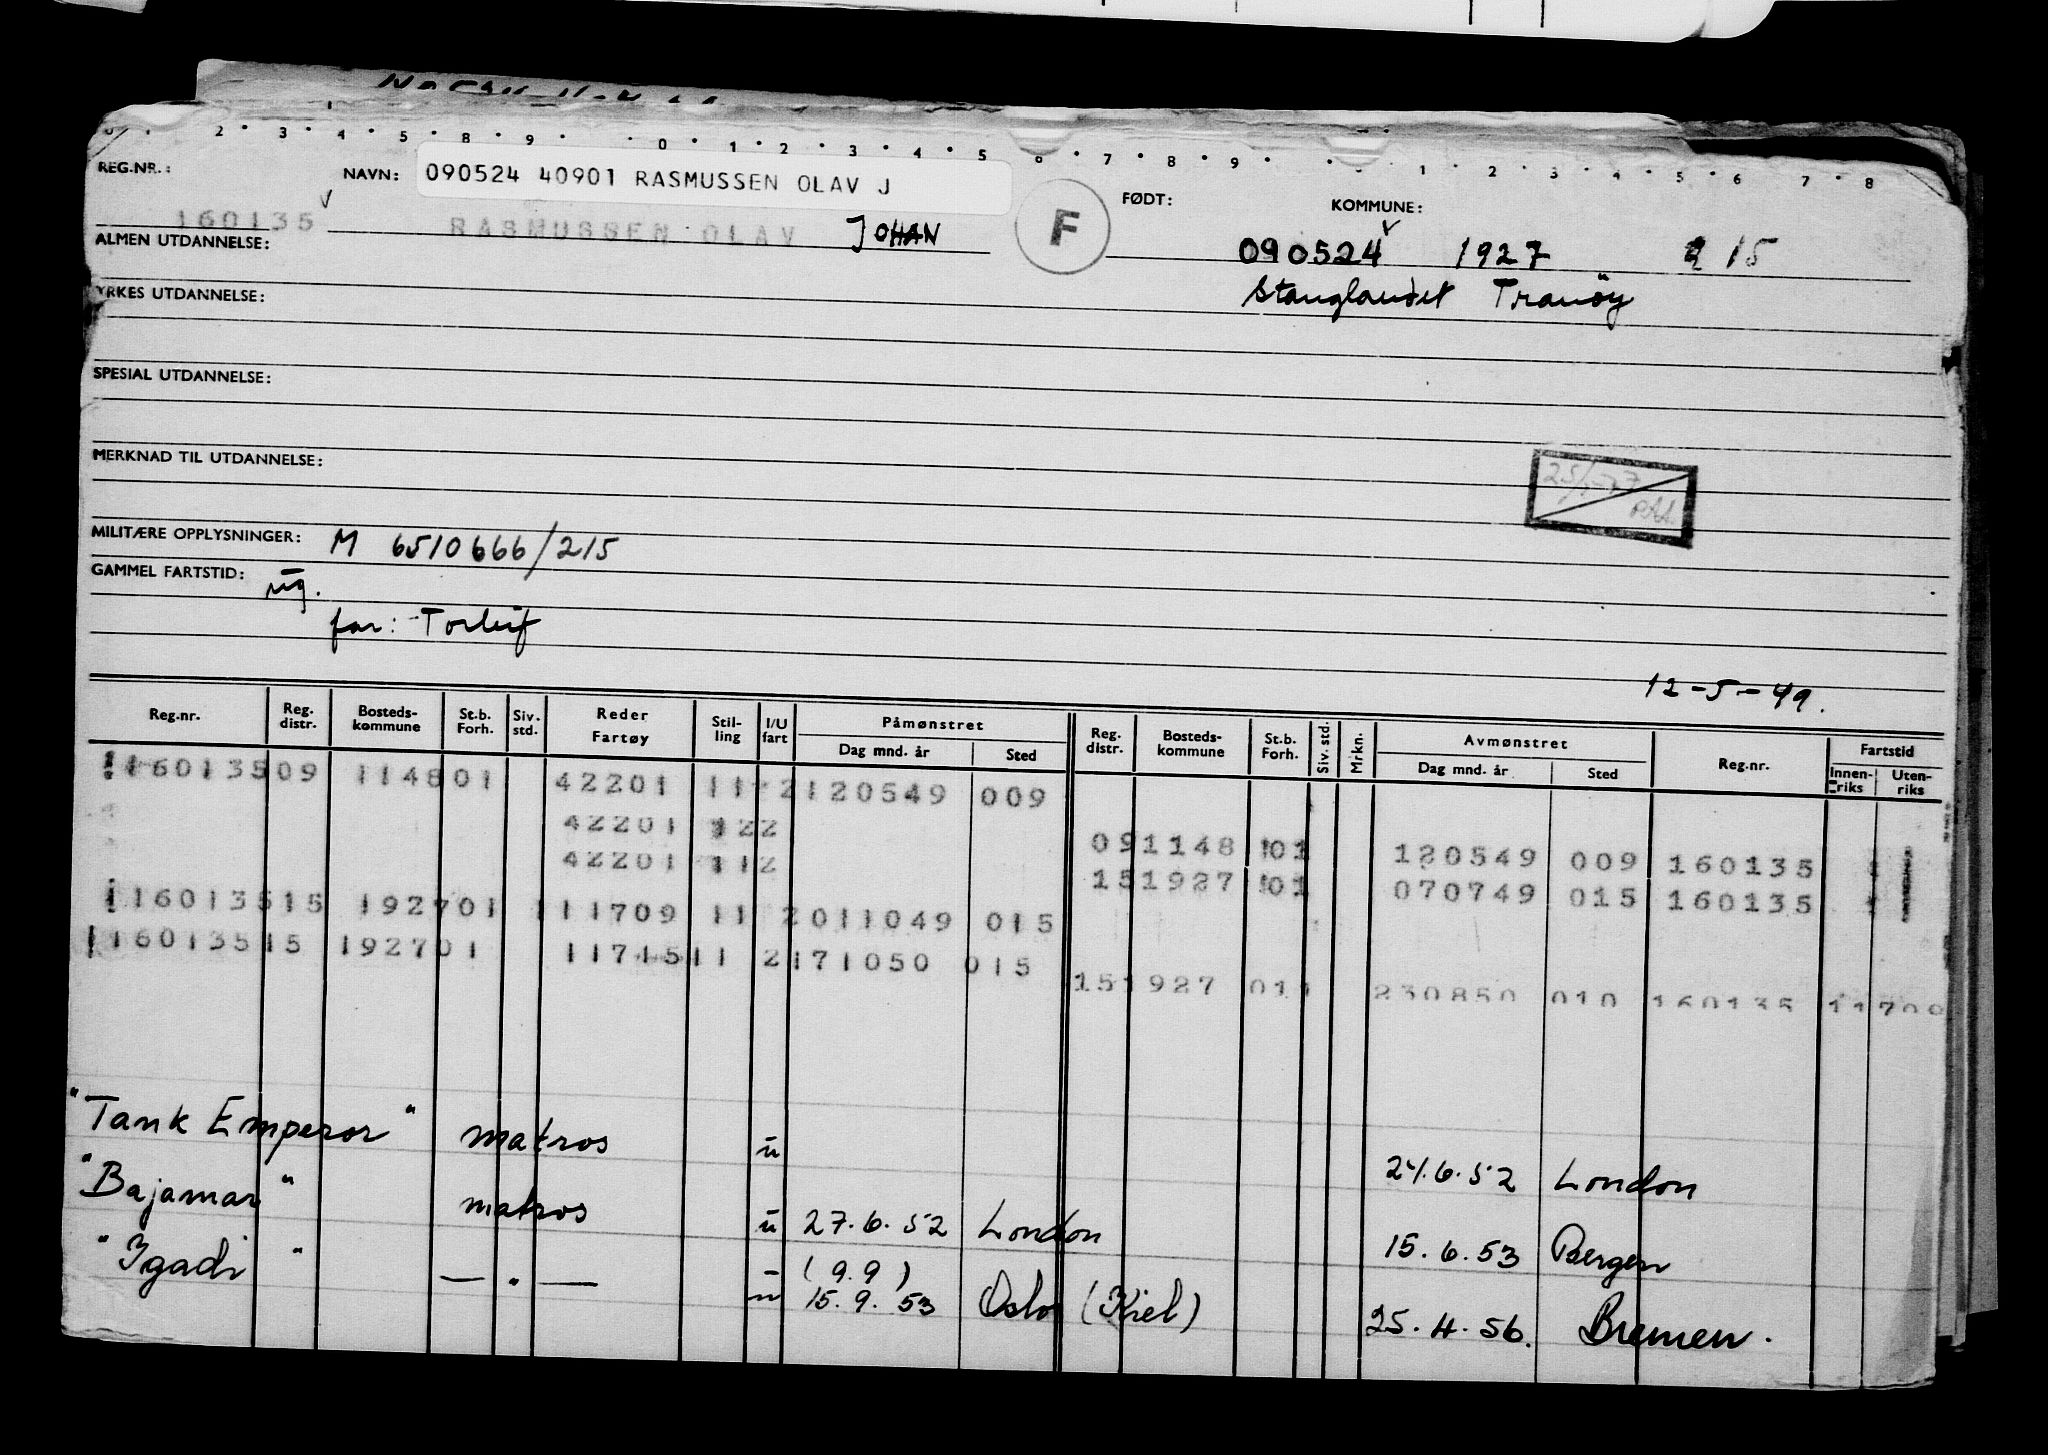 2 3 4 5 8 9 0 1 2 3 4 5 6 7 8 9 1 2 3 4 5 6 7 8
REG.NR.:
NAVN: 090524 40901 RASMUSSEN OLAV J
FØDT:
KOMMUNE:
160135
RASMUSSEN OLAV JOHAN
F
090524 1927 2 15
ALMEN UTDANNELSE:
Stanglandet Tranöy
YRKES UTDANNELSE:
SPESIAL UTDANNELSE:
MERKNAD TIL UTDANNELSE:
MILITÆRE OPPLYSNINGER: M 6510666/215
GAMMEL FARTSTID:
far: Torleif
12-5-49.
Reg.nr. Reg. distr. Bosteds-kommune St.b. Forh. Siv. std. Reder Fartøy Stil-ling I/U fart Påmønstret Dag mnd. år Sted Reg. distr. Bosteds-kommune St.b. Forh. Siv. std. Mrkn. Avmønstret Dag mnd. år Sted Reg.nr. Fartstid Innen-riks Uten-riks
16013509 114801 42201 11 2120549 009
42201 122 091148 01 120549 009 160135
42201 112 151927 01 070749 015 160135
16013515 192701 111709 11 2011049 015
16013515 192701 1171511 2171050 015
151927 011 230850 010 160135 11709
"Tank Emperor" matros u 24.6.52 London
"Bajamar" matros u 27.6.52 London 15.6.53 Bergen
"Igadi" — " — u (9.9)
15.9.53 Oslo (Kiel) 25.4.56. Bremen.